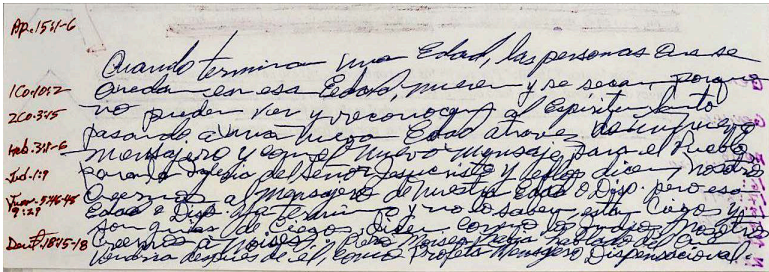 Ap. 15:1-6
1Co. 10:2
2Co. 3:15
Heb. 3:1-6
Jud. 1:9
Juan. 5:46-45
9:29
Deut. 18:15-18
Cuando termina una Edad, las personas que se
quedan en esa Edad, mueren y se secan, porque
no pueden ver y reconocer al Espíritu Santo
pasando a una nueva Edad a través de un nuevo
mensajero y con el nuevo mensaje para el Pueblo
para la Iglesia del Señor Jesucristo y ellos dicen, nosotros
creemos al mensajero de nuestra Edad o Disp. pero esa
Edad o Disp. ya terminó y no lo saben, están ciegos y
son guías de ciegos. Dicen como los judíos, nosotros
creemos a Moisés. Pero Moisés había hablado del que
vendría después de él como Profeta Mensajero Dispensacional.